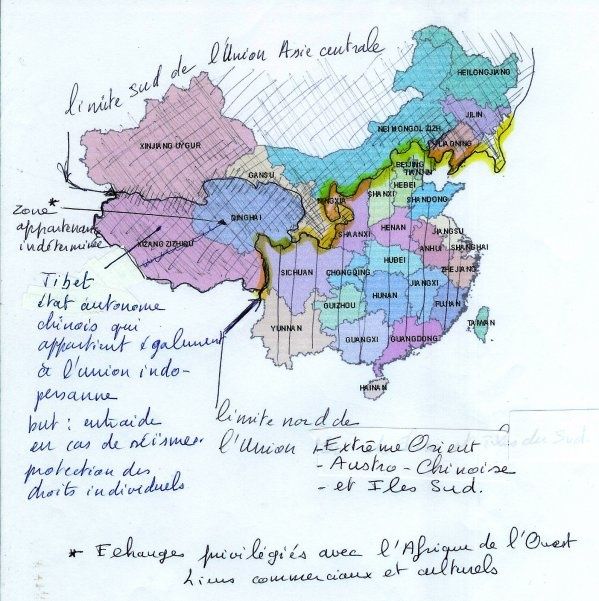 limite sud de l'Union Asie centrale
HEILONGJIANG
JILIN
NEI MONGOL ZIZH
LIAONING
XINJIANG UYGUR
GANSU
BEIJING
TIANJIN
HEBEI
NINGXIA
SHANXI
SHANDONG
zone *
appartenance
indéterminée
QINGHAI
XIZANG ZIZHIQU
SHAANXI
HENAN
JIANGSU
ANHUI
SHANGHAI
SICHUAN
CHONGQING
HUBEI
ZHEJIANG
HUNAN
JIANGXI
GUIZHOU
FUJIAN
YUNNAN
GUANGXI
GUANGDONG
TAIWAN
HAINAN
Tibet
état autonome
chinois qui
appartient également
à l'union indo-
persanne
but : entraide
en cas de séismes
protection des
droits individuels
limite nord de
l'Union - Extrême Orient
- Austro-Chinoise
- et Iles Sud.
du Sud.
* Echanges privilégiés avec l'Afrique de l'Ouest
Liens commerciaux et culturels